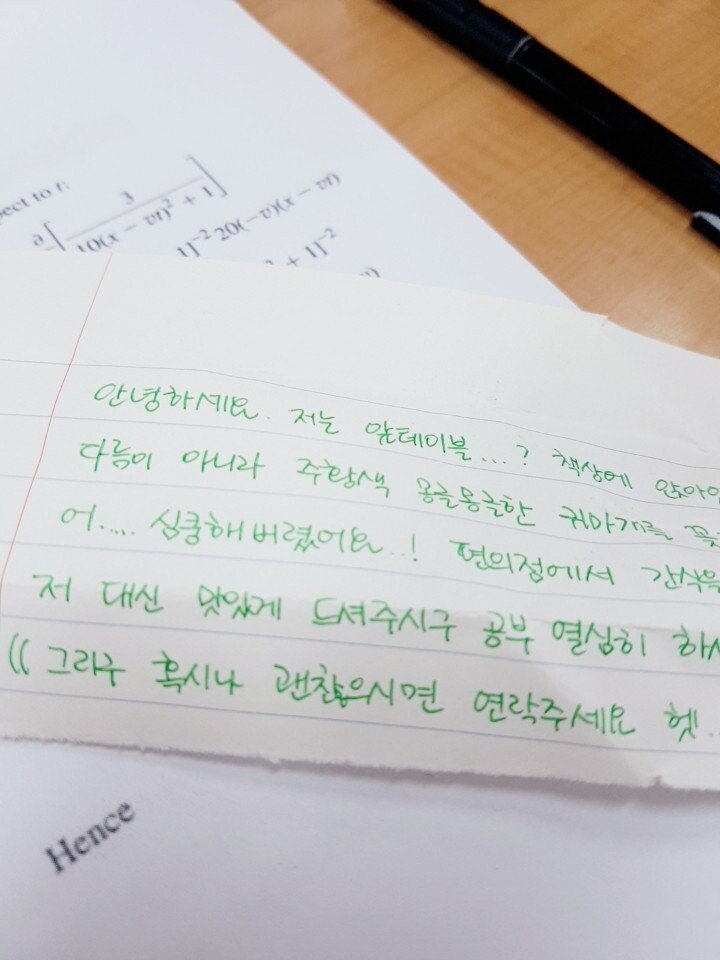 pect to t:
∂[3 / 10(x − vt)² + 1]
1]⁻² 20(−v)(x − vt)
+ 1]⁻²
안녕하세요. 저는 앞테이블...? 책상에 앉아
다름이 아니라 주황색 몽글몽글한 귀마개를
어..... 심쿵해버렸어요..! 편의점에서 간식을
저 대신 맛있게 드셔주시구 공부 열심히 하시
(( 그리구 혹시나 괜찮으시면 연락주세요 헷..
Hence